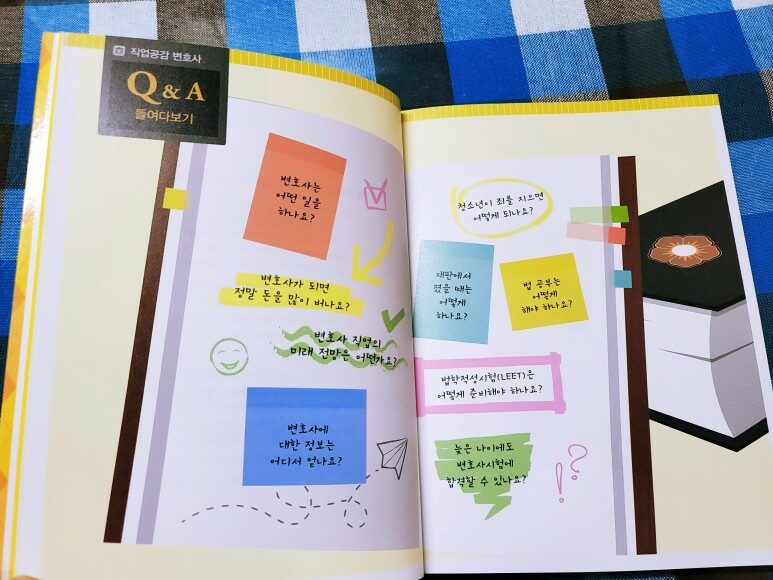 직업공감 변호사
Q & A
들여다보기
변호사는
어떤 일을
하나요?
변호사가 되면
정말 돈을 많이 버나요?
변호사 직업의
미래 전망은 어떤가요?
변호사에
대한 정보는
어디서 얻나요?
청소년이 죄를 지으면
어떻게 되나요?
재판에서
졌을 때는
어떻게
하나요?
법 공부는
어떻게
해야 하나요?
법학적성시험(LEET)은
어떻게 준비해야 하나요?
늦은 나이에도
변호사시험에
합격할 수 있나요?
!?